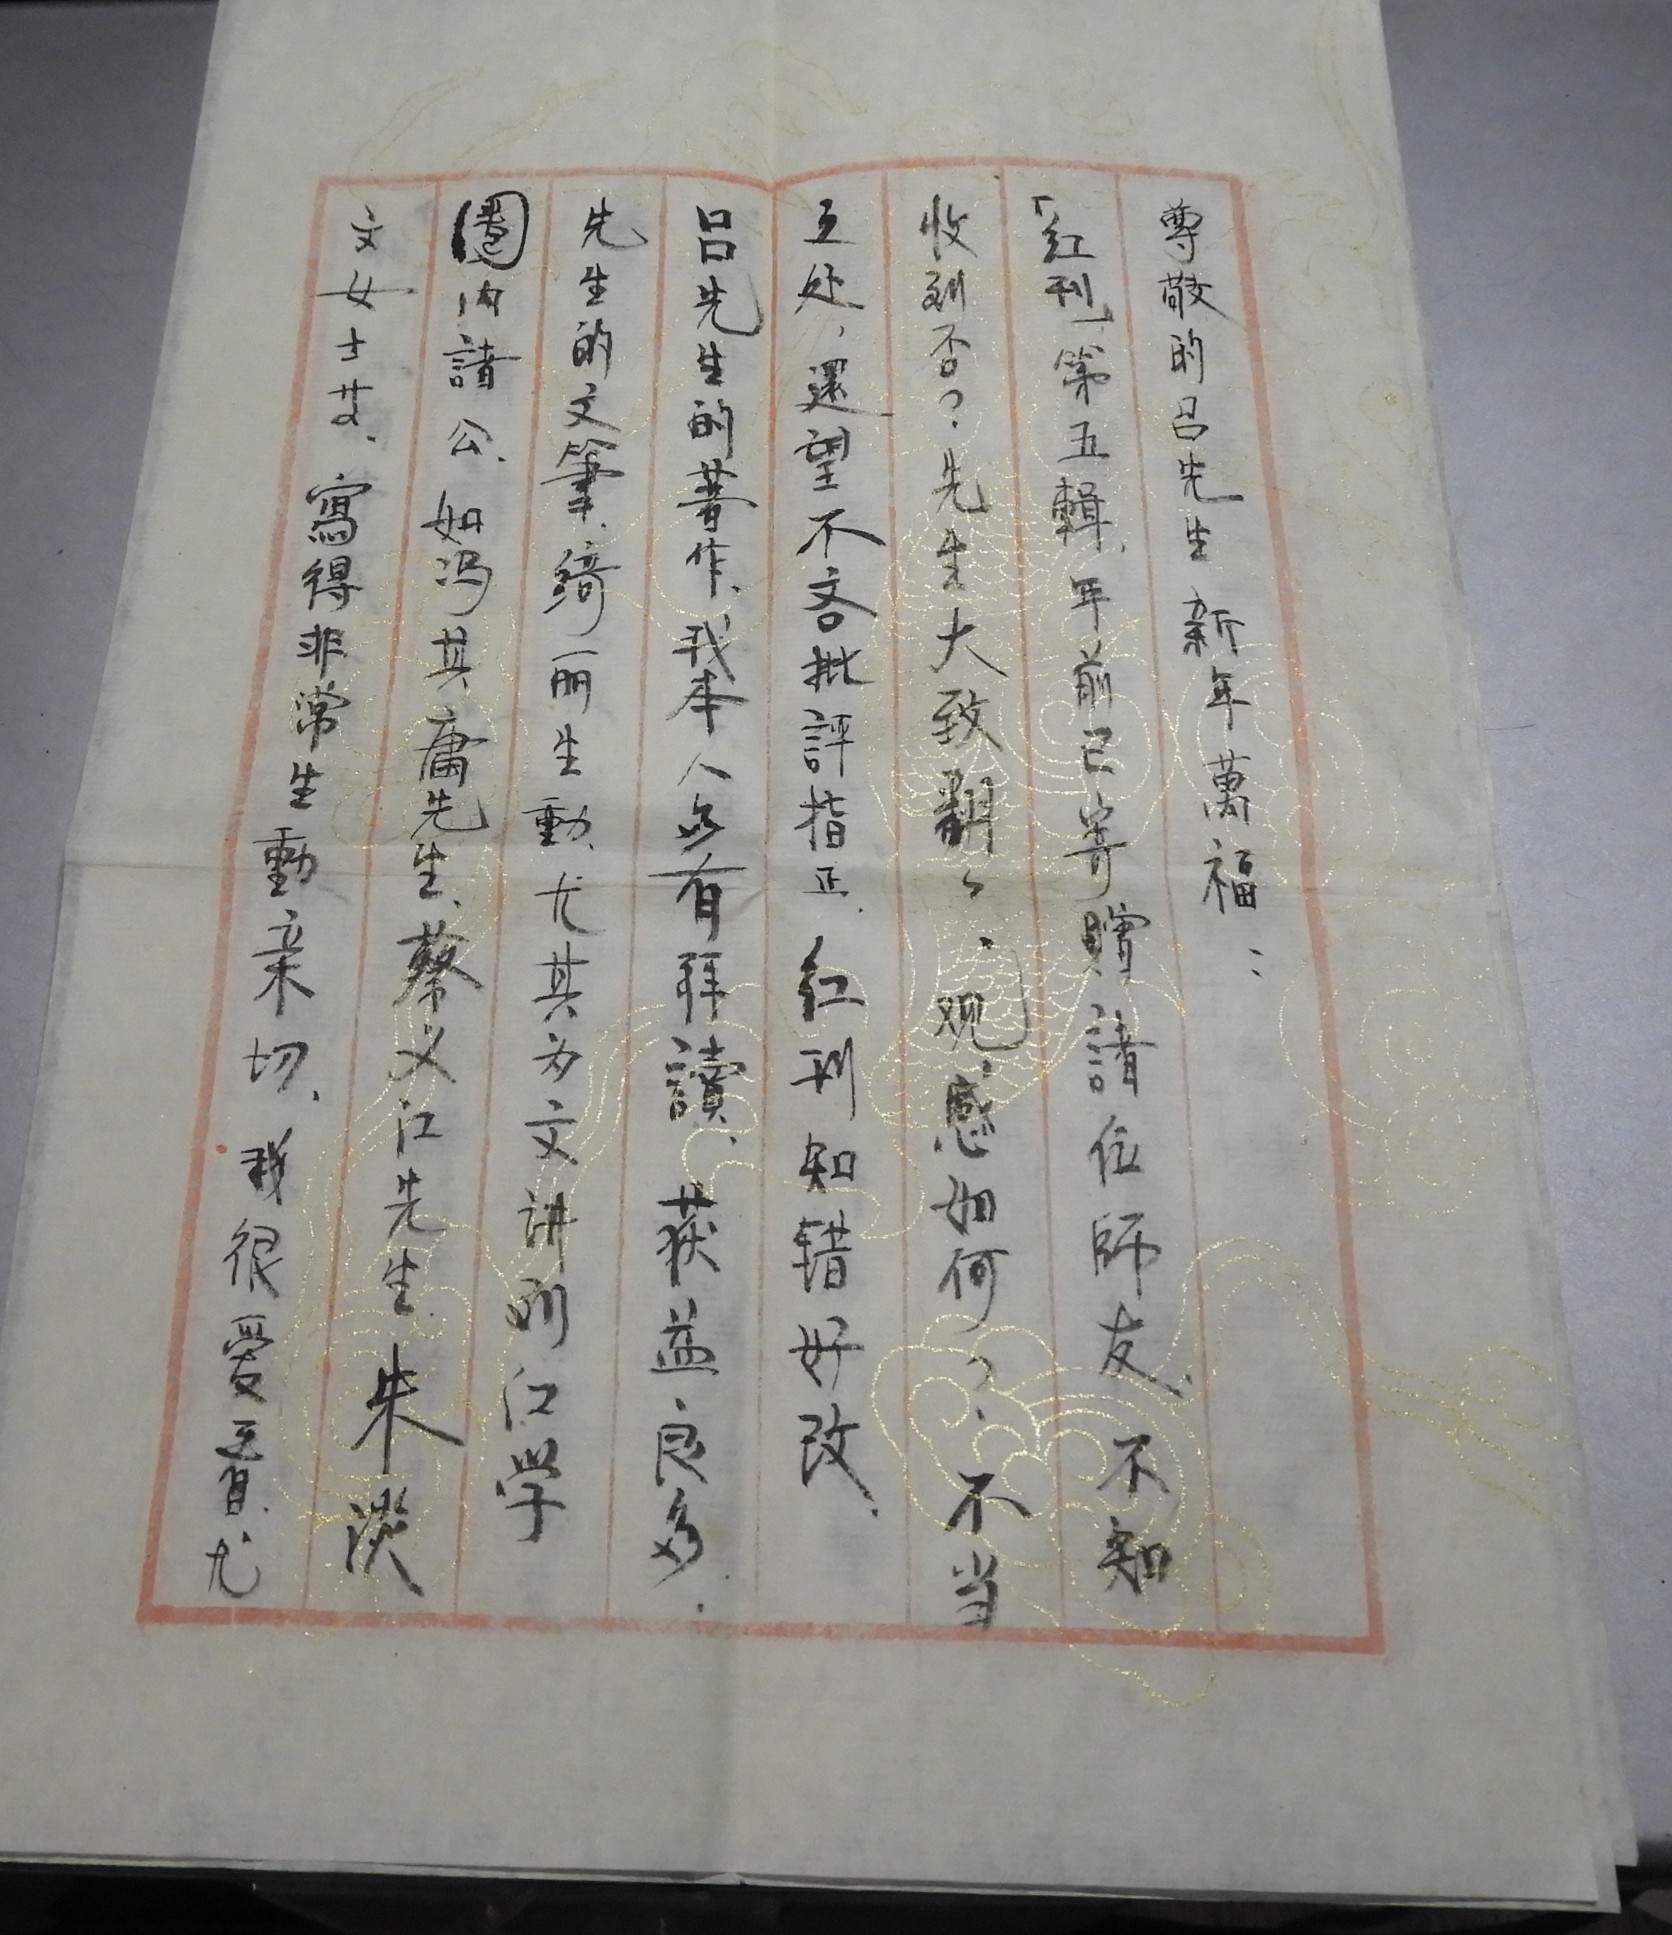 尊敬的吕先生 新年萬福：
「红刊」第五輯、年前已寄贈諸位師友、不知
收到否？先生大致翻々、观感如何？不当
之处，還望不吝批評指正、红刊知错好改、
吕先生的著作、我本人多有拜讀、获益良多.
先生的文筆、绮丽生動、尤其为文讲到红学
圈内諸公、如冯其庸先生、蔡义江先生、朱淡
文女士等、寫得非常生動亲切、我很爱看、尤